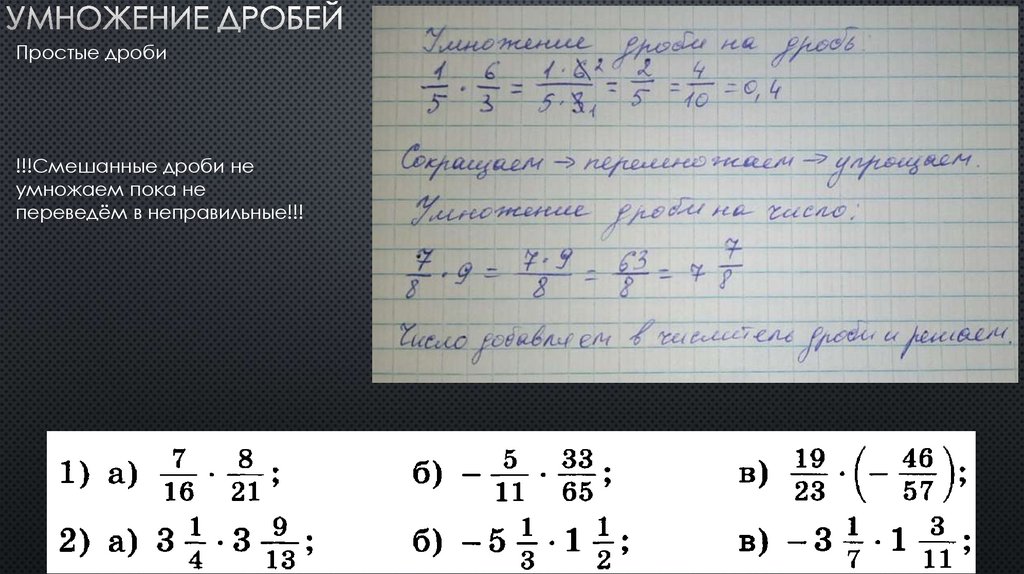 УМНОЖЕНИЕ ДРОБЕЙ
Простые дроби
!!!Смешанные дроби не
умножаем пока не
переведём в неправильные!!!
Умножение дроби на дробь:
1/5 · 6/3 = 1·6 2/5·3 1 = 2/5 = 4/10 = 0,4
Сокращаем → перемножаем → упрощаем.
Умножение дроби на число:
7/8 · 9 = 7·9/8 = 63/8 = 7 7/8
Число добавляем в числитель дроби и решаем.
1) а) 7/16 · 8/21; б) − 5/11 · 33/65; в) 19/23 · (− 46/57);
2) а) 3 1/4 · 3 9/13; б) −5 1/3 · 1 1/2; в) −3 1/7 · 1 3/11;